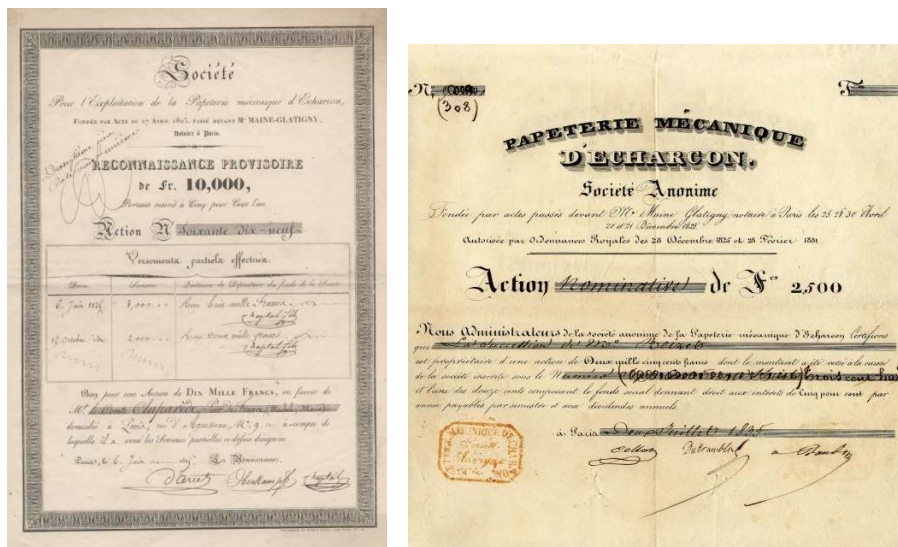 Société
Pour l'Exploitation de la Papeterie mécanique d'Echarcon,
FONDÉE PAR ACTE DU 27 AVRIL 1825, PASSÉ DEVANT Me MAINE-GLATIGNY,
Notaire à Paris.
RECONNAISSANCE PROVISOIRE
de Fr. 10,000,
Portant intérêt à Cinq pour Cent l'an.
Action N soixante dix-neuf
Versements partiels effectués.
6. Juin 1825 8,000 huit mille francs
2,000 deux mille francs
Bon pour une Action de DIX MILLE FRANCS, en faveur de
Mr. le Comte
domicilié à Paris, rue d'Aguesseau, No. 9 à compte de
laquelle il a versé les Sommes partielles ci-dessus désignées.
Paris, le 6 Juin Les Administrateurs,
d'Arcet Oberkampf
N.
(308)
F
PAPETERIE MÉCANIQUE
D'ECHARCON.
Société Anonime
Fondée par actes passés devant Me. Maine Glatigny notaire à Paris les 25. 28. 30 Avril
20 et 21 Décembre 1825
Autorisée par Ordonnances Royales des 28 Décembre 1825 et 28 Février 1831
Action Nominative de Fcs 2,500
Nous Administrateurs de la société anonime de la Papeterie mécanique d'Echarcon Certifions
que La succession de Mr.
est propriétaire d'une action de Deux mille cinq cents francs dont le montant a été versé à la caisse
de la société inscrite sous le Numéro trois cent huit
et l'une des douze cents composant le fonds social donnant droit aux intérêts de Cinq pour cent par
année payables par semestre et aux dividendes annuels
à Paris Deux Juillet 1835